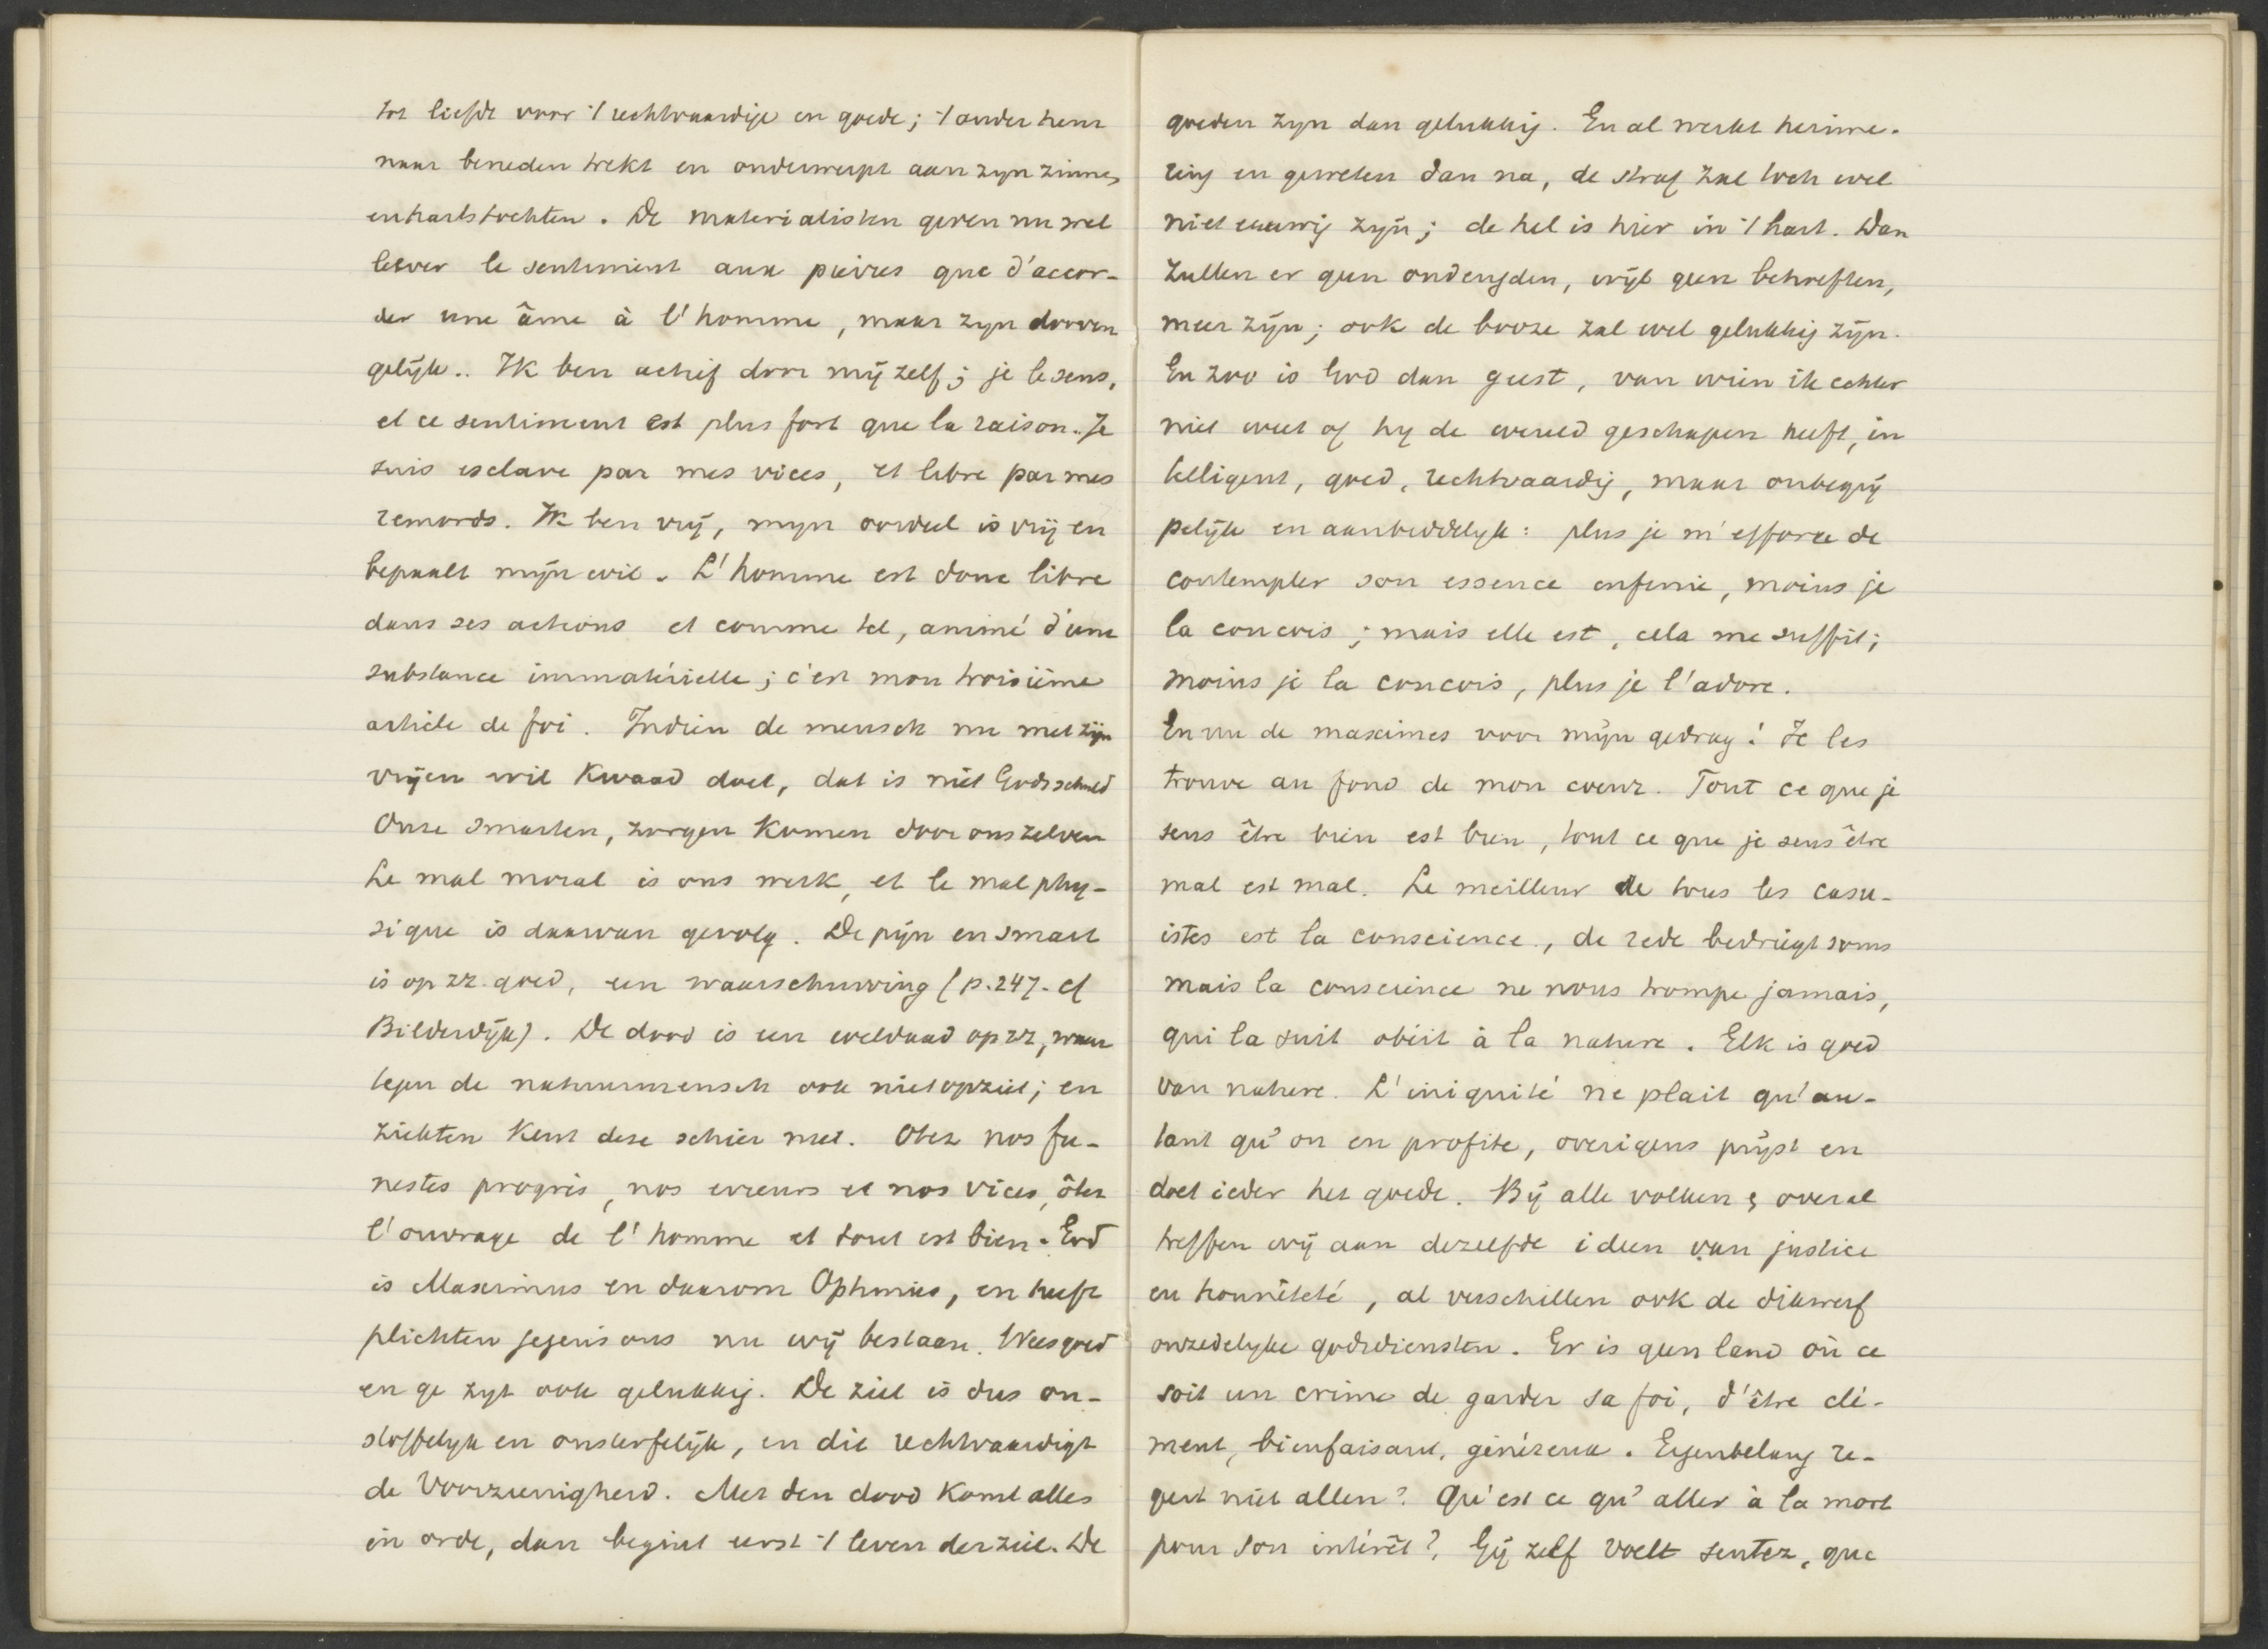 tot liefde voor 't rechtvaardige en goede; 't ander hem
naar beneden trekt en onderwerpt aan zyn zinnen
en hartstochten. De materialisten geven nu wel
liever le sentiment aux pierres que d'accor-
der une âme à l'homme, maar zyn dooven
gelijk.. Ik ben actief door mij zelf; je le sens,
et ce sentiment est plus fort que la raison. Je
suis esclave par mes vices, et libre par mes
remords. Ik ben vrij, myn oordeel is vrij en
bepaalt mijn wil. L'homme est donc libre
dans ses actions et comme tel, animé d'une
substance immatérielle; c'est mon troisième
article de foi. Indien de mensch nu met zijn
vrijen wil kwaad doet, dat is niet Gods schuld
Onze smarten, zorgen komen door ons zelven
Le mal moral is ons werk, et le mal phy-
sique is daarvan gevolg. De pijn en smart
is op zz. goed, een waarschuwing (p. 247. cf
Bilderdijk). De dood is een weldaad op zz, waar
tegen de natuurmensch ook niet opziet; en
ziekten kent deze schier niet. Otez nos fu-
nestes progrès, nos erreurs et nos vices, ôtez
l'ouvrage de l'homme et tout est bien. God
is Maximus en daarom Optimus, en heeft
plichten jegens ons nu wij bestaan. Wees goed
en ge zyt ook gelukkig. De ziel is dus on-
stoffelyk en onsterfelijk, en dit rechtvaardigt
de Voorzienigheid. Met den dood komt alles
in orde, dan begint eerst 't leven der ziel. De
goeden zyn dan gelukkig. En al werkt herinne-
ring en geweten dan na, de straf zal toch wel
niet eeuwig zijn; de hel is hier in 't hart. Dan
zullen er geen ondeugden, wijl geen behoeften,
meer zijn; ook de booze zal wel gelukkig zijn.
En zoo is God dan geest, van wien ik echter
niet weet of hy de wereld geschapen heeft, in
telligent, goed, rechtvaardig, maar onbegrij
pelijk en aanbiddelyk: plus je m'efforce de
contempler son essence infinie, moins je
la concois; mais elle est, cela me suffit;
moins je la concois, plus je l'adore.
En nu de maximes voor mijn gedrag! Je les
trouve au fond de mon coeur. Tout ce que je
sens être bien est bien, tout ce que je sens être
mal est mal. Le meilleur de tous les casu-
istes est la conscience., de rede bedriegt soms
mais la conscience ne nous trompe jamais,
qui la suit obéit à la nature. Elk is goed
van nature. L'iniquité ne plait qu'au-
tant qu'on en profite, overigens prijst en
doet ieder het goede. Bij alle volken & overal
treffen wij aan dezelfde ideen van justice
en honnêteté, al verschillen ook de dikwerf
onzedelyke godsdiensten. Er is geen land où ce
soit un crime de garder sa foi, d'être clé-
ment, bienfaisant, généreux. Eigenbelang re-
geert niet allen? Qu'est ce qu'aller à la mort
pour son intérêt? Gij zelf voelt sentez, que